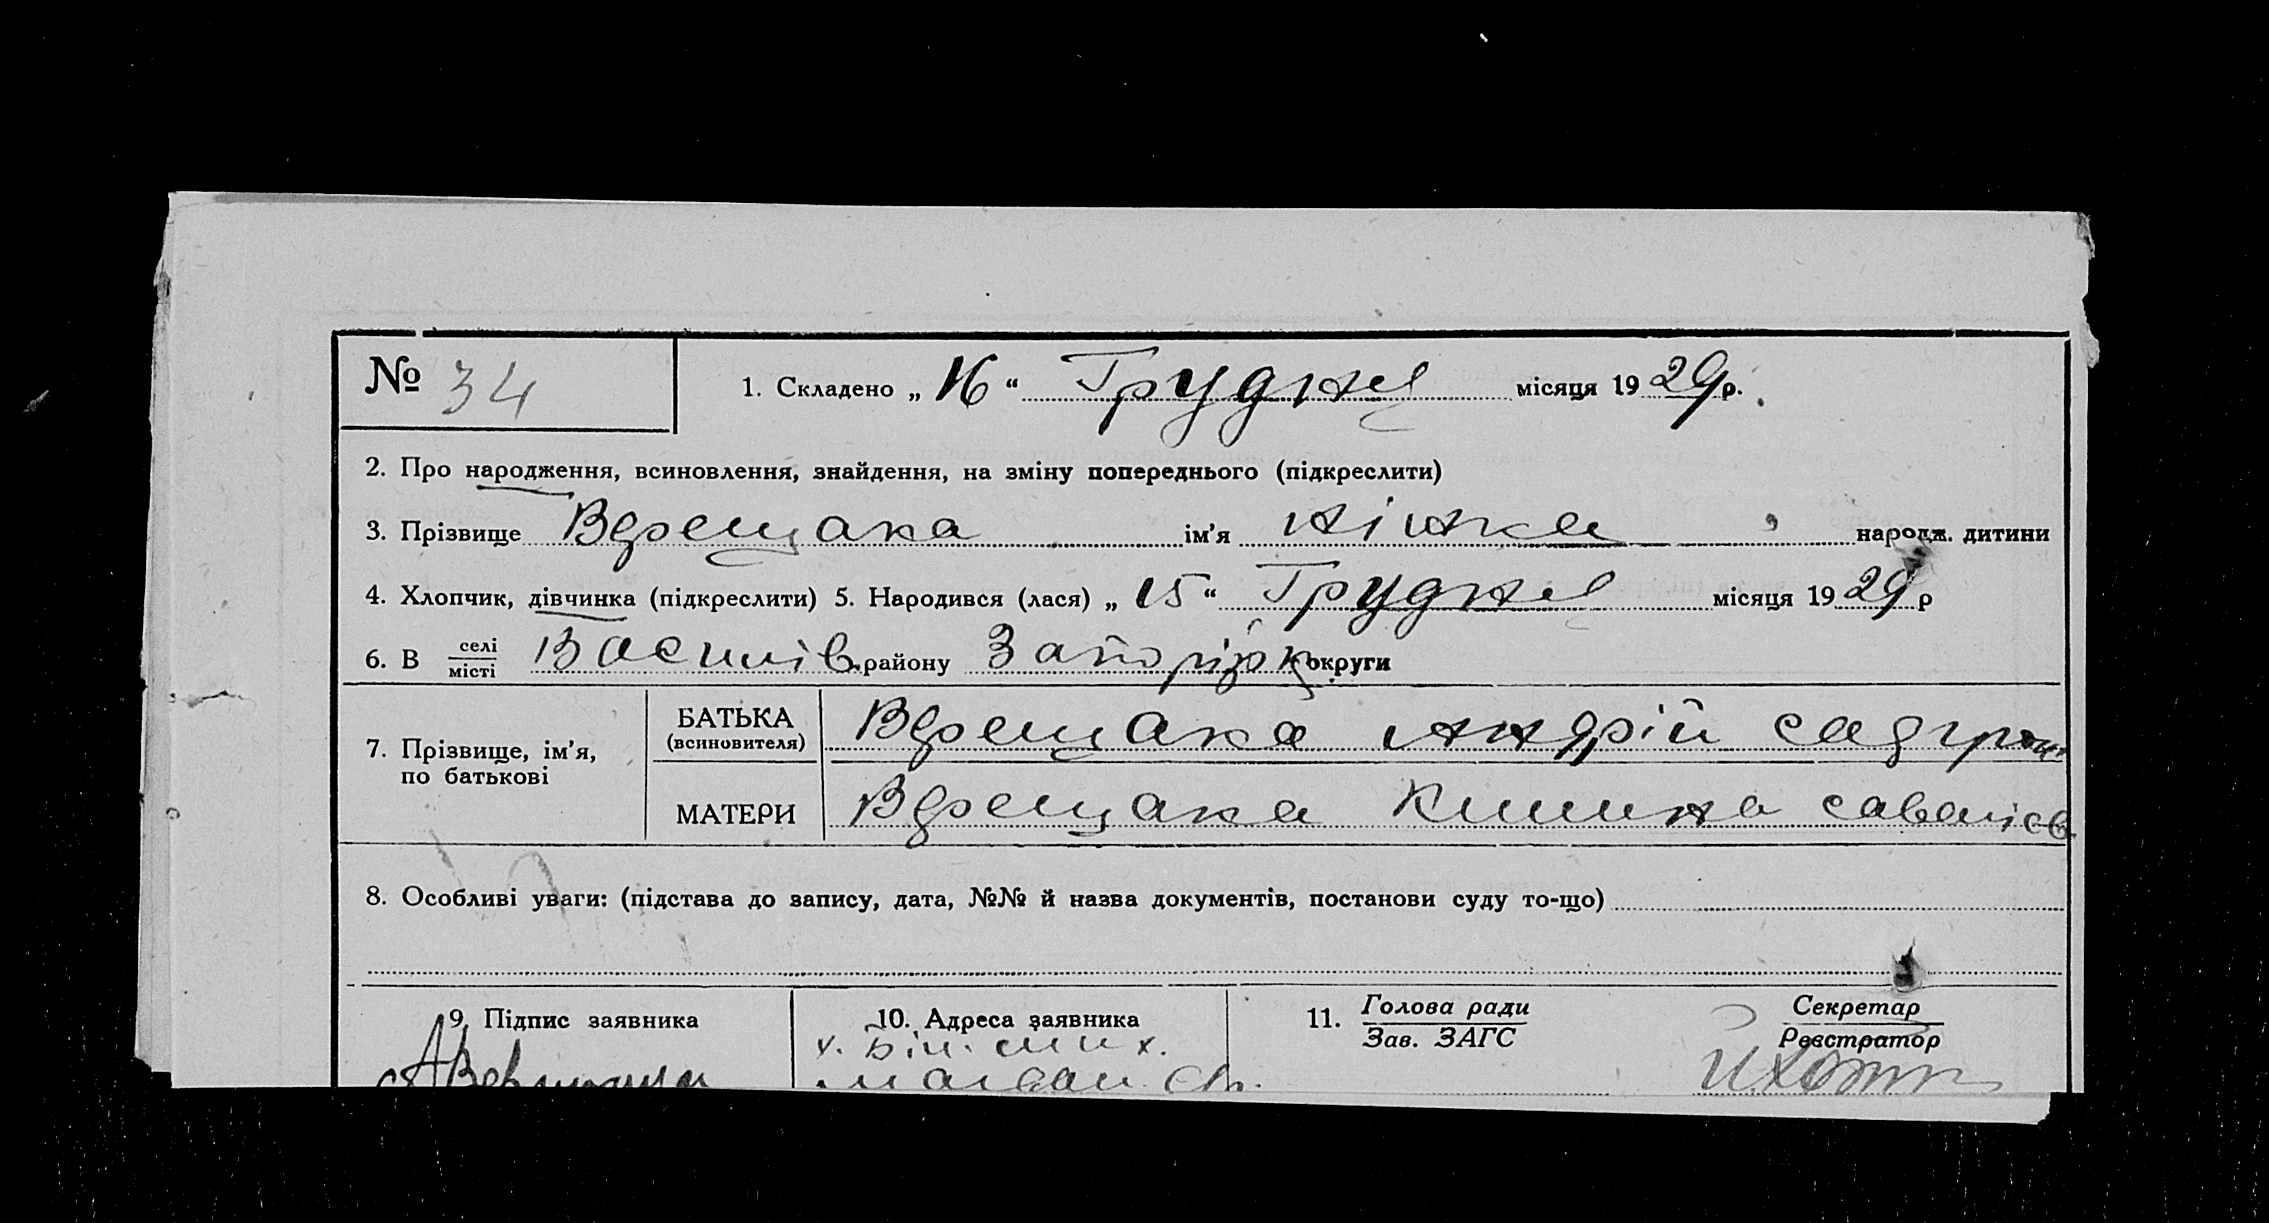 № 34
1. Складено „ 16 “ Грудня місяця 1929 р.
2. Про народження, всиновлення, знайдення, на зміну попереднього (підкреслити)
3. Прізвище Верещака ім’я Нінка народж. дитини
4. Хлопчик, дівчинка (підкреслити) 5. Народився (лася) „ 15 “ Грудня місяця 1929 р
6. В селі місті Василів. району Запоріжк округи
7. Прізвище, ім’я, по батькові
БАТЬКА (всиновителя) Верещака Андрій
МАТЕРИ Верещака
8. Особливі уваги: (підстава до запису, дата, №№ й назва документів, постанови суду то-що)
9. Підпис заявника
10. Адреса заявника
х.
11. Голова ради Зав. ЗАГС
Секретар Реєстратор